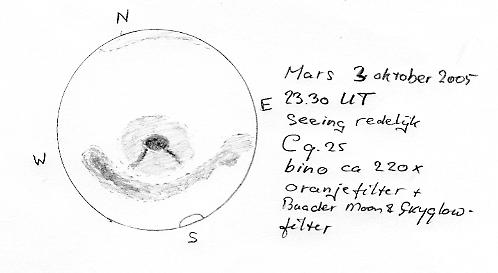 N
E
W
S
Mars 3 oktober 2005
23.30 UT
Seeing redelijk
C 9.25
bino ca 220x
oranjefilter +
Baader Moon & Skyglow-
filter